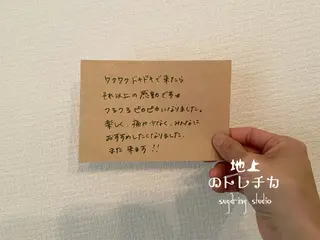 ワクワクドキドキで来たら
それ以上の感動です😊
ツルツルピカピカになりました。
楽しく、痛み少なく、みんなに
おすすめしたくなりました。
また来ます!!
地上
のトレチカ
sugaring studio